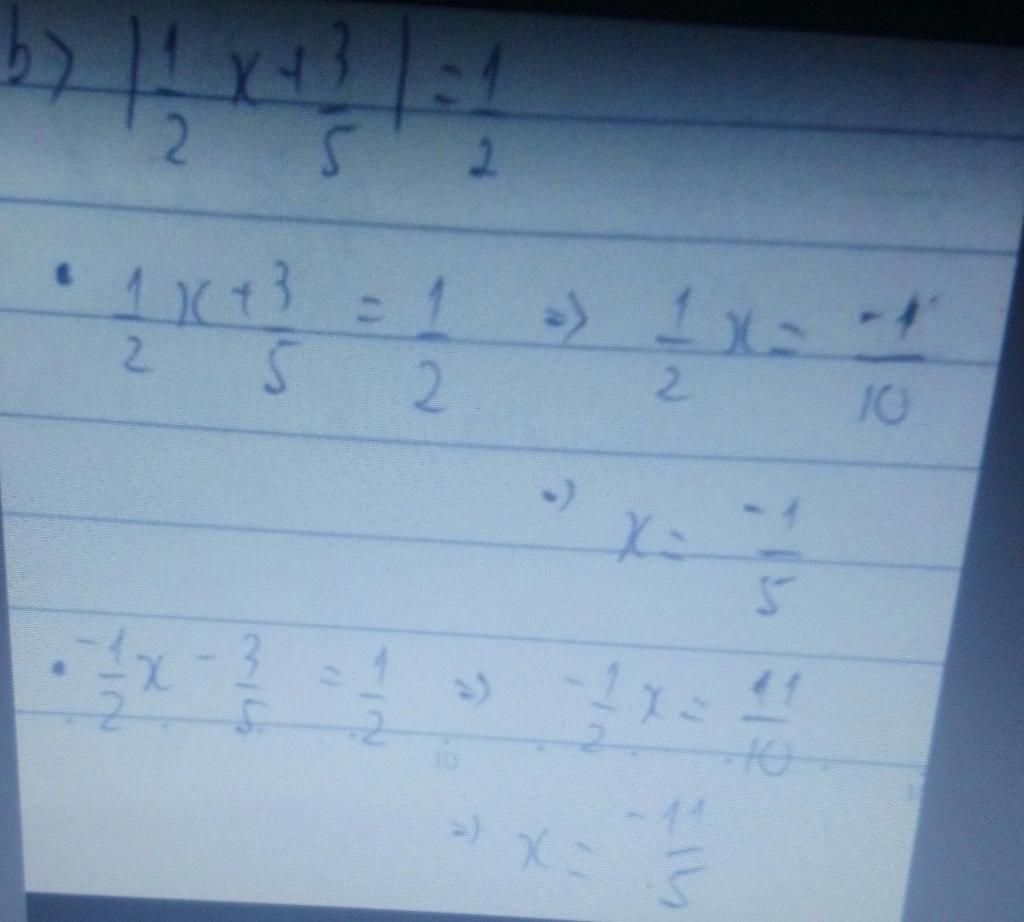 b> |1/2 x + 3/5| = 1/2
• 1/2 x + 3/5 = 1/2 => 1/2 x = -1/10
=> x = -1/5
• -1/2 x - 3/5 = 1/2 => -1/2 x = 11/10
=> x = -11/5